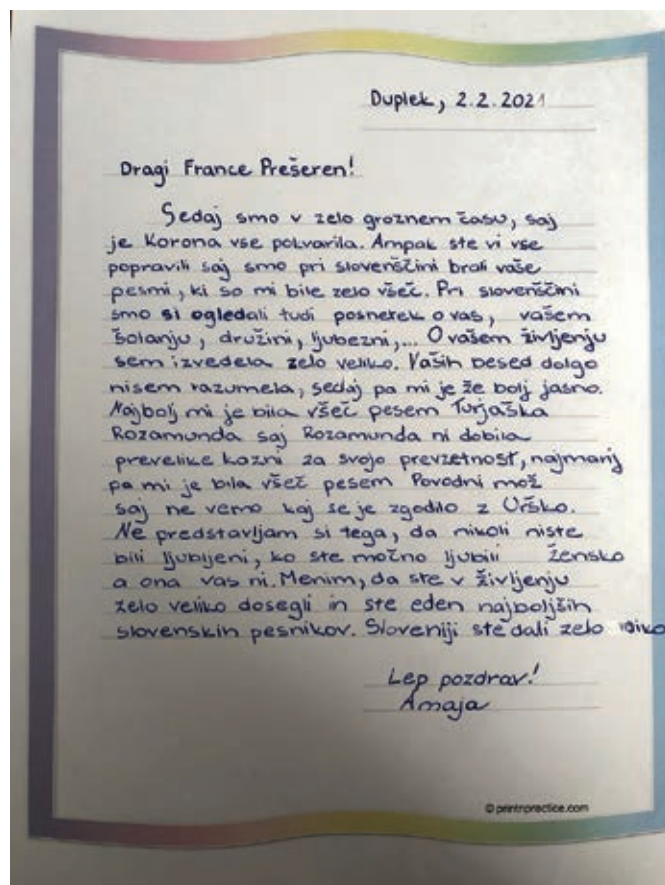 Duplek, 2.2.2021
Dragi France Prešeren!
Sedaj smo v zelo groznem času, saj
je Korona vse pokvarila. Ampak ste vi vse
popravili saj smo pri slovenščini brali vaše
pesmi, ki so mi bile zelo všeč. Pri slovenščini
smo si ogledali tudi posnetek o vas, vašem
šolanju, družini, ljubezni,... O vašem življenju
sem izvedela zelo veliko. Vaših besed dolgo
nisem razumela, sedaj pa mi je že bolj jasno.
Najbolj mi je bila všeč pesem Turjaška
Rozamunda saj Rozamunda ni dobila
prevelike kazni za svojo prevzetnost, najmanj
pa mi je bila všeč pesem Povodni mož
saj ne vemo kaj se je zgodilo z Urško.
Ne predstavljam si tega, da nikoli niste
bili ljubljeni, ko ste močno ljubili žensko
a ona vas ni. Menim, da ste v življenju
zelo veliko dosegli in ste eden najboljših
slovenskih pesnikov. Sloveniji ste dali zelo
Lep pozdrav!
Amaja
© printnpractice.com